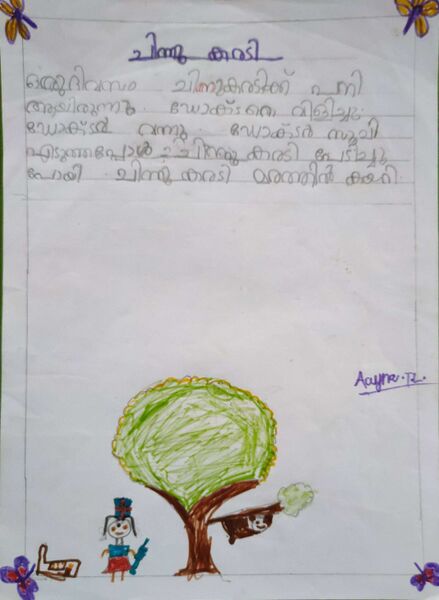 ചിന്നു കരടി
ഒരുദിവസം ചിന്നുകരടിക്ക് പനി
ആയിരുന്നു. ഡോക്ടറെ വിളിച്ചു.
ഡോക്ടർ വന്നു. ഡോക്ടർ സൂചി
എടുത്തപ്പോൾ ചിന്നു കരടി പേടിച്ചു
പോയി. ചിന്നു കരടി മരത്തിൽ കയറി.
Aayna. R.